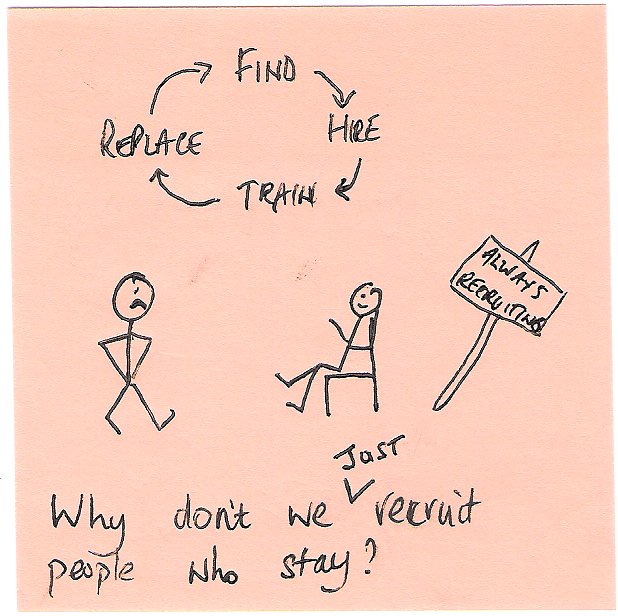 FIND
HIRE
TRAIN
REPLACE
ALWAYS
RECRUITING
JUST
Why don't we recruit
people who stay?